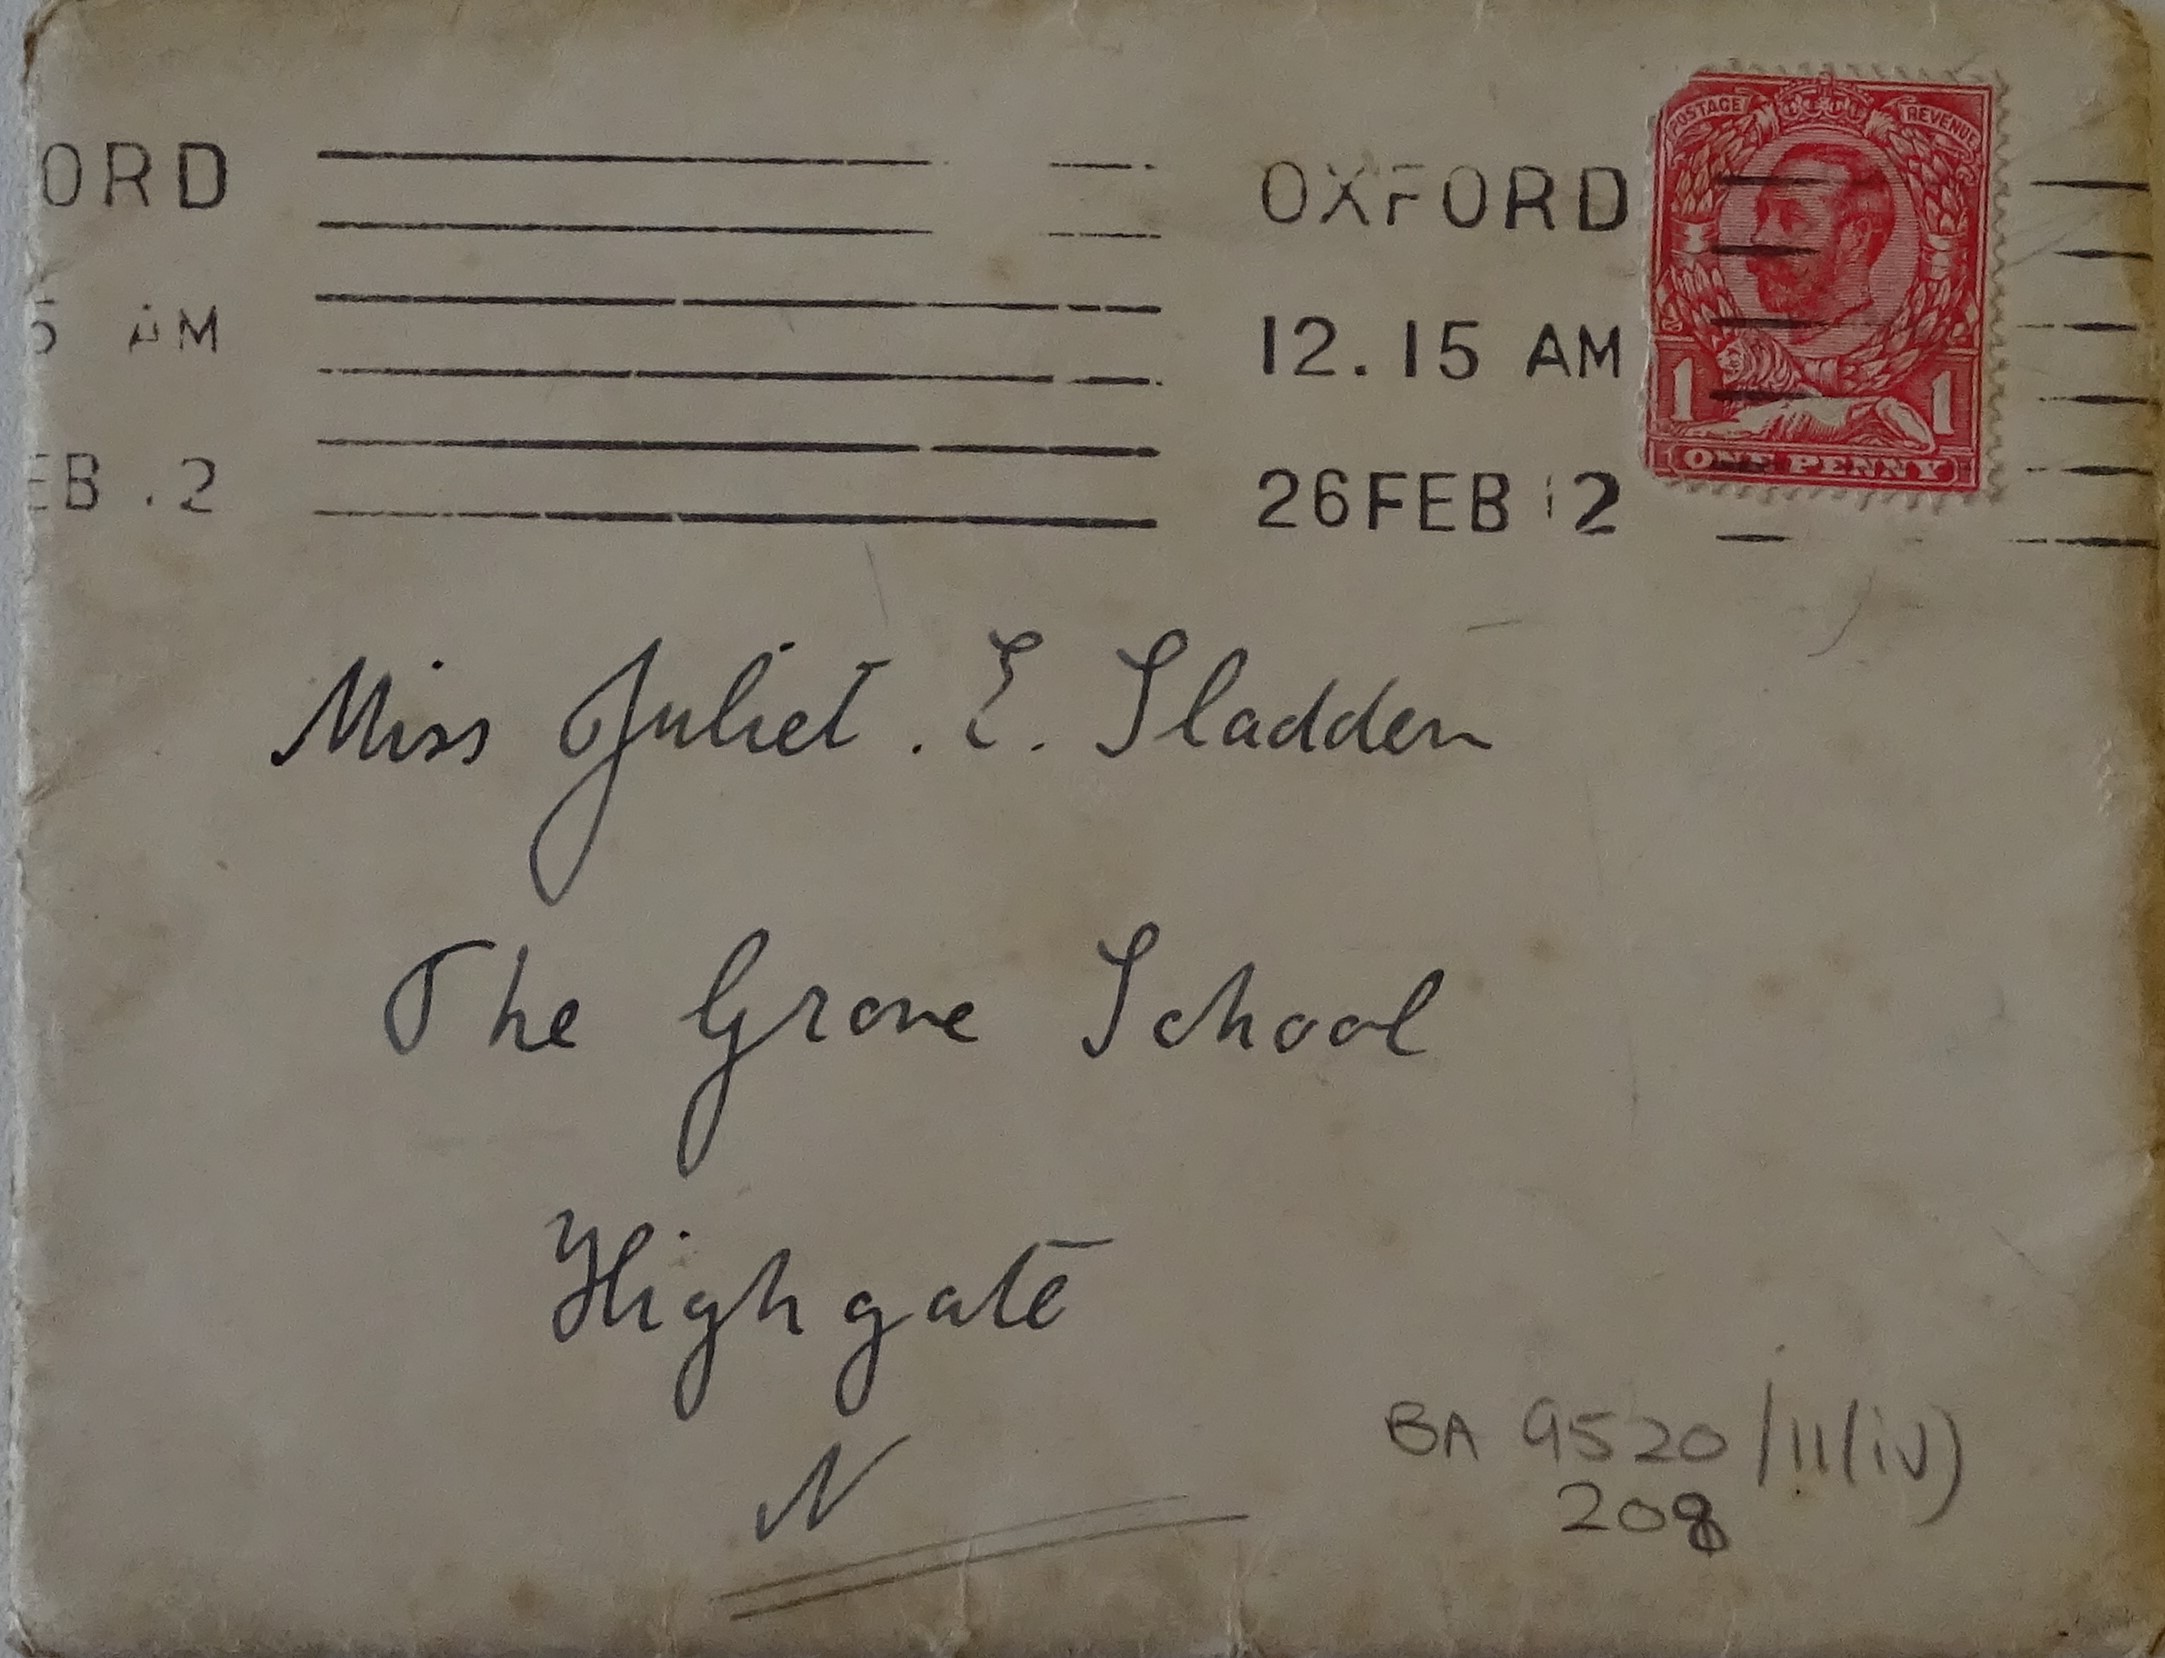 ORD
5 AM
EB .2
OXFORD
12.15 AM
26FEB 12
POSTAGE REVENUE
1 1
ONE PENNY
Miss Juliet. E. Sladden
The Grove School
Highgate
N
BA 9520/11(iv)
208